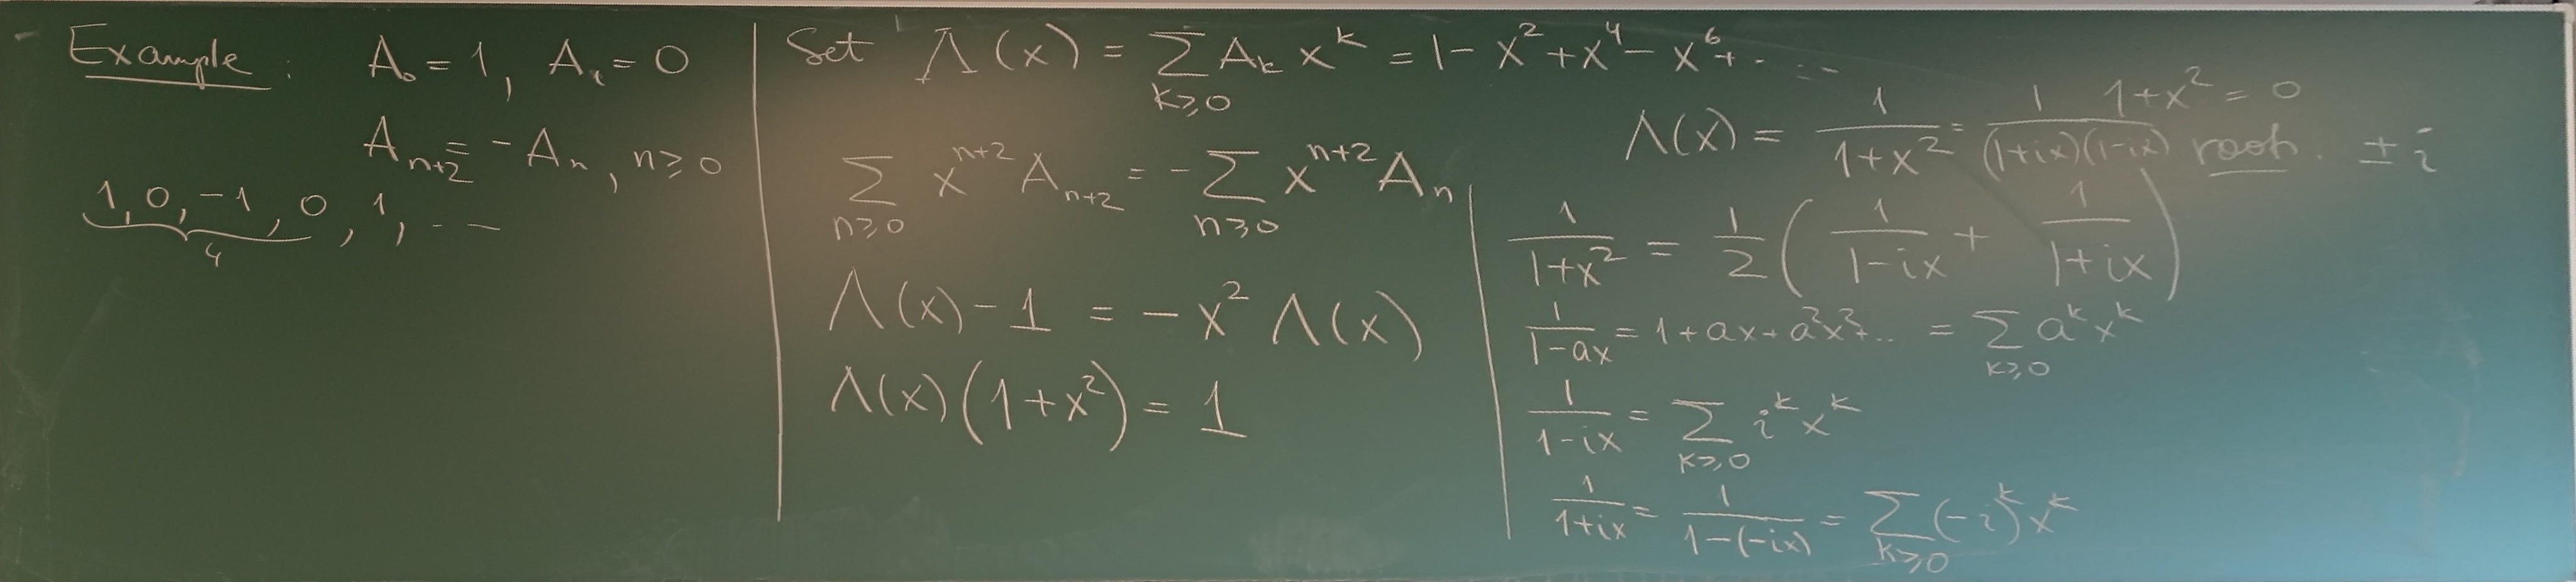 Example : A₀ = 1, A₁ = 0
Aₙ₊₂ = -Aₙ, n ≥ 0
1, 0, -1, 0, 1, - -
4
Set Λ(x) = ∑_{k≥0} Aₖ xᵏ = 1 - x² + x⁴ - x⁶ + . . . -
∑_{n≥0} xⁿ⁺² Aₙ₊₂ = - ∑_{n≥0} xⁿ⁺² Aₙ
Λ(x) - 1 = - x² Λ(x)
Λ(x)(1+x²) = 1
Λ(x) = 1/(1+x²) = 1/((1+ix)(1-ix)) 1+x² = 0
roots. ± i
1/(1+x²) = 1/2 ( 1/(1-ix) + 1/(1+ix) )
1/(1-ax) = 1 + ax + a²x² + .. = ∑_{k≥0} aᵏxᵏ
1/(1-ix) = ∑_{k≥0} iᵏxᵏ
1/(1+ix) = 1/(1-(-ix)) = ∑_{k≥0} (-i)ᵏxᵏ